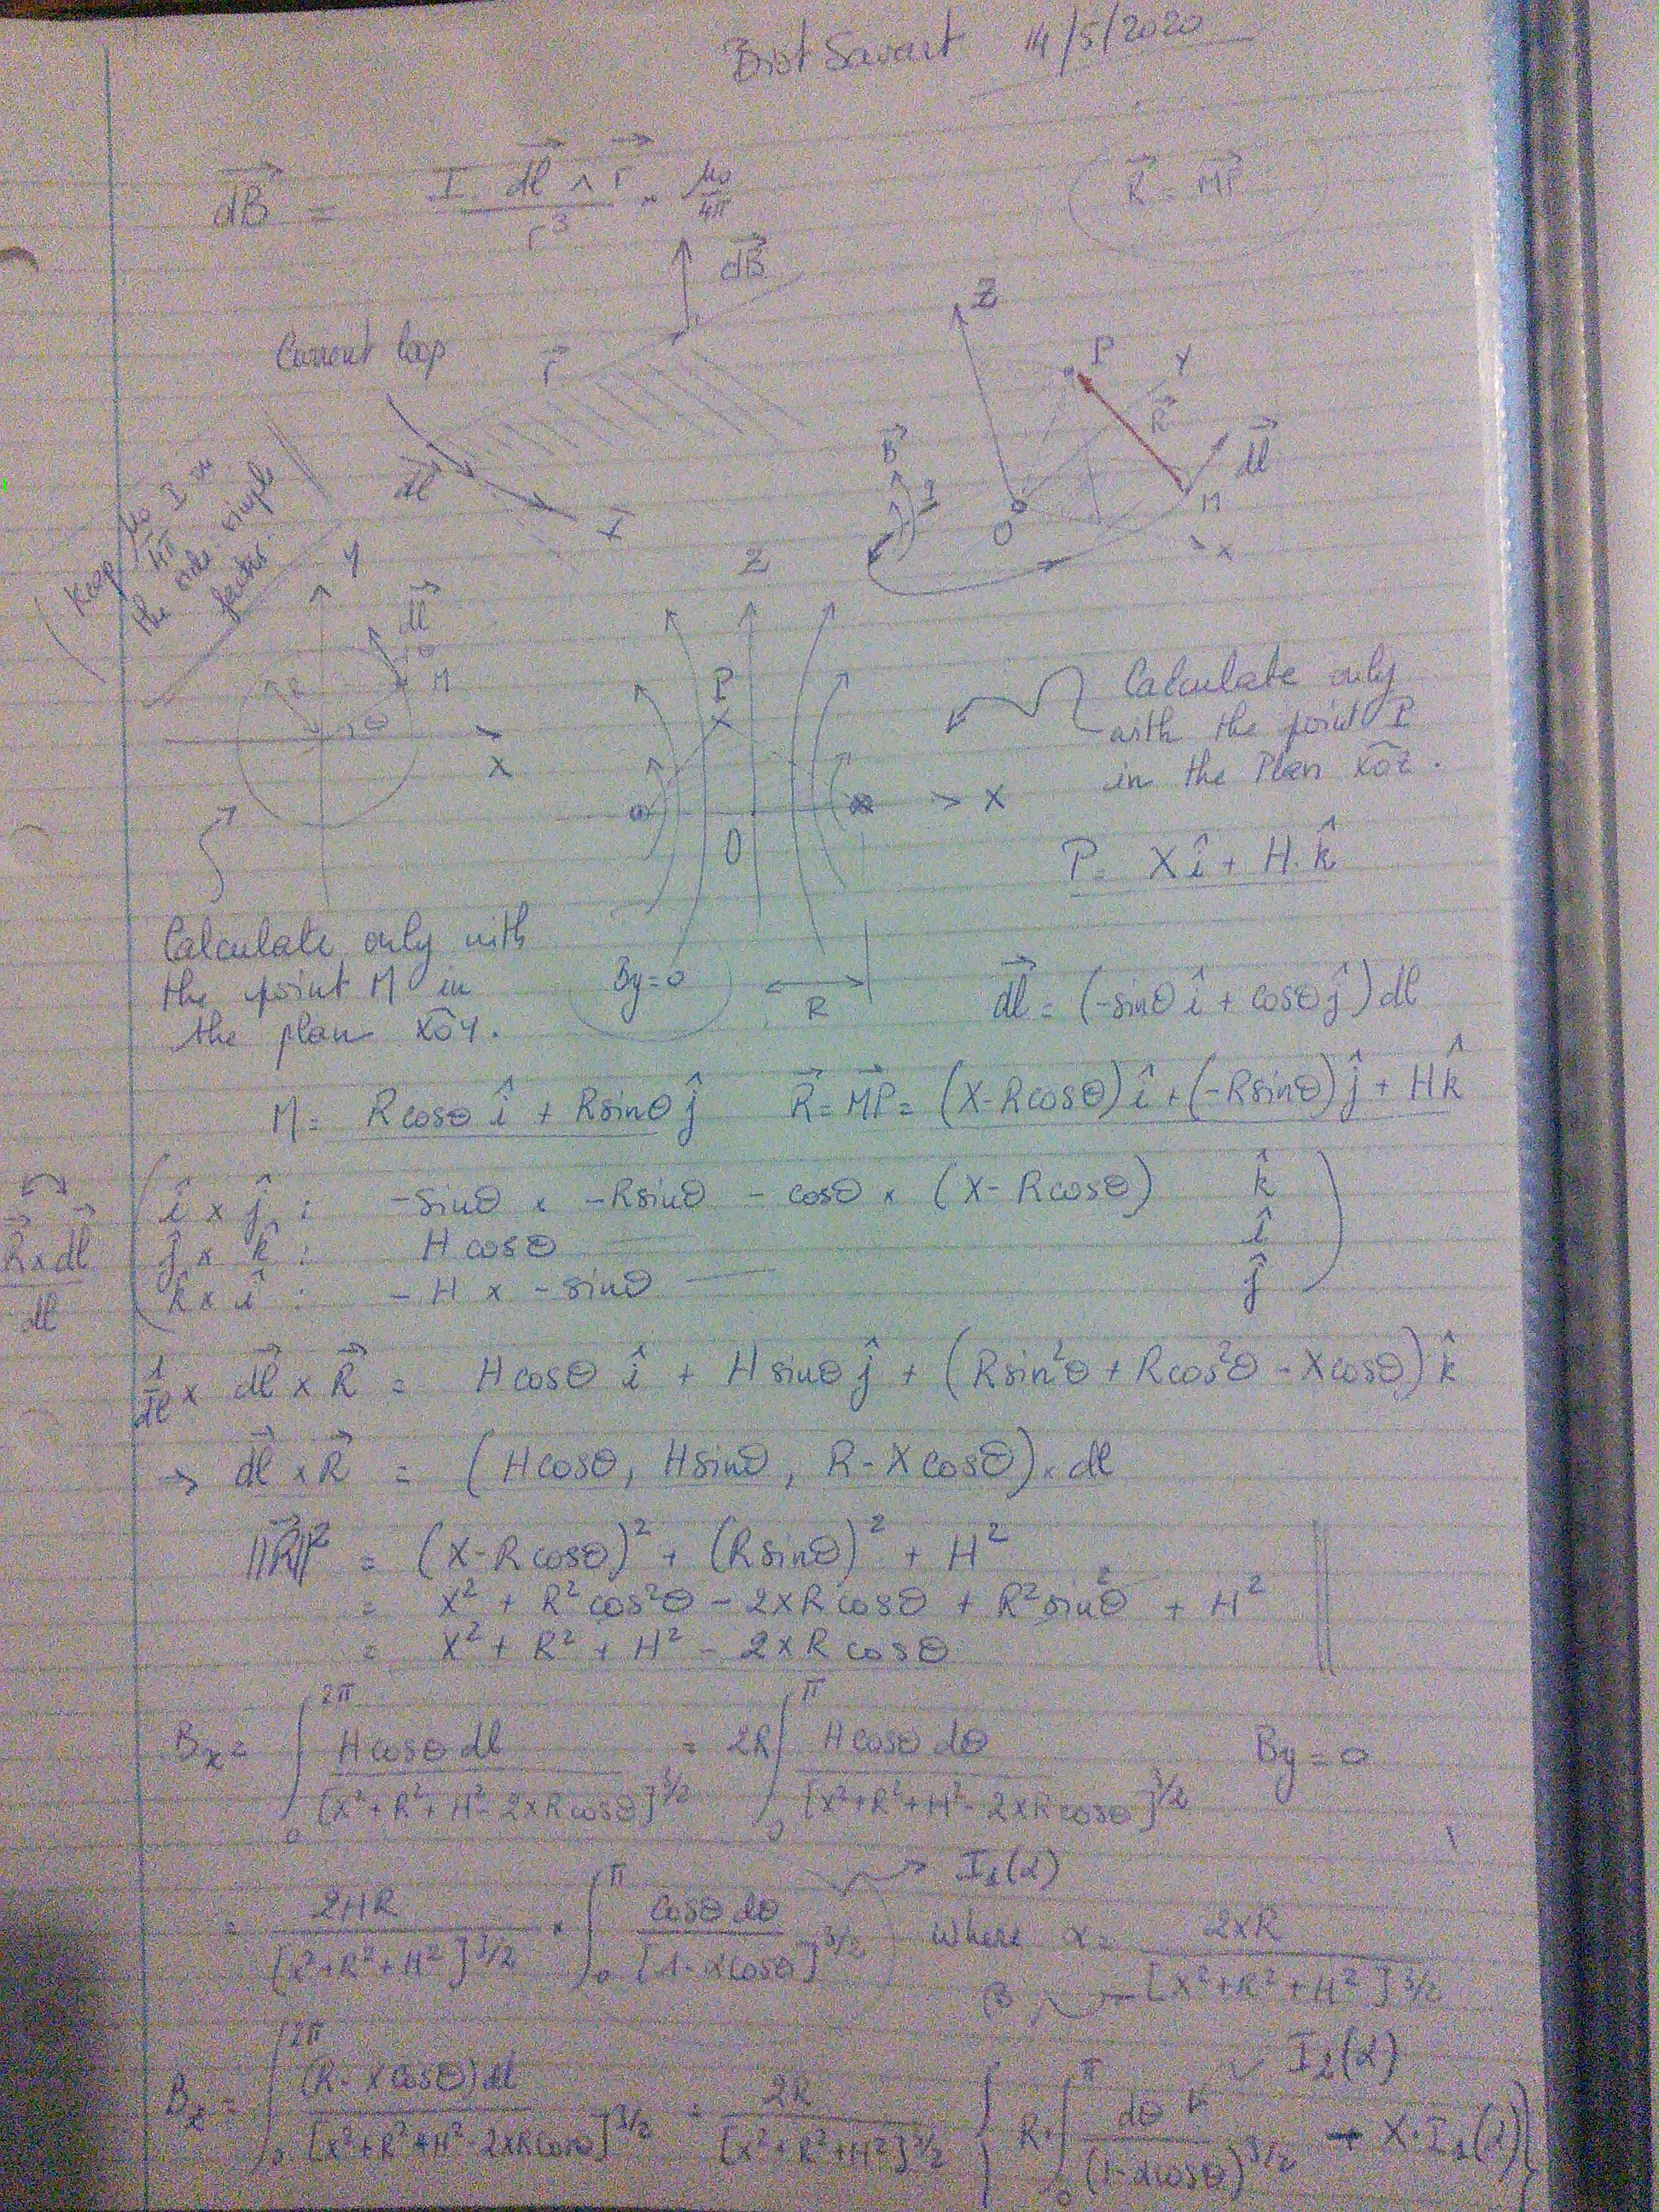 Biot Savart 14/5/2020
dB⃗ = I dl⃗ ∧ r⃗ / r³ × μ₀/4π
R⃗ = MP⃗
dB⃗
Current loop
r⃗
dl⃗
I
Z
P
Y
R⃗
dl⃗
M
O
X
B⃗
I
(Keep μ₀/4π I on
the side. simple
factor.
Y
dl⃗
θ
M
R
θ
X
Z
P
O
X
R
By=0
Calculate only
with the point P
in the Plan XÔZ.
P = X î + H. k̂
Calculate only with
the point M in
the plan XÔY.
dl⃗ = (-sinθ î + cosθ ĵ) dl
M = R cosθ î + R sinθ ĵ R⃗ = MP⃗ = (X-Rcosθ) î + (-Rsinθ) ĵ + H k̂
R⃗ x dl⃗ / dl
î x ĵ : -sinθ x -Rsinθ - cosθ x (X-Rcosθ) k̂
ĵ x k̂ : H cosθ î
k̂ x î : - H x -sinθ ĵ
1/dl x dl⃗ x R⃗ = H cosθ î + H sinθ ĵ + (Rsin²θ + Rcos²θ - Xcosθ) k̂
→ dl⃗ x R⃗ = (Hcosθ, Hsinθ, R-Xcosθ) x dl
||R⃗||² = (X-Rcosθ)² + (Rsinθ)² + H²
= X² + R²cos²θ - 2XRcosθ + R²sin²θ + H²
= X² + R² + H² - 2XR cosθ
Bx = ∫₀^2π Hcosθ dl / [X²+R²+H²-2XRcosθ]^3/2 = 2R ∫₀^π Hcosθ dθ / [X²+R²+H²-2XRcosθ]^3/2 By = 0
→ I₁(α)
= 2HR / [X²+R²+H²]^3/2 × ∫₀^π cosθ dθ / [1-αcosθ]^3/2 where α = 2XR / [X²+R²+H²]^3/2
β
I₂(α)
Bz = ∫₀^2π (R-Xcosθ) dl / [X²+R²+H²-2XRcosθ]^3/2 = 2R / [X²+R²+H²]^3/2 { R. ∫₀^π dθ / (1-αcosθ)^3/2 - X.I₁(α) }